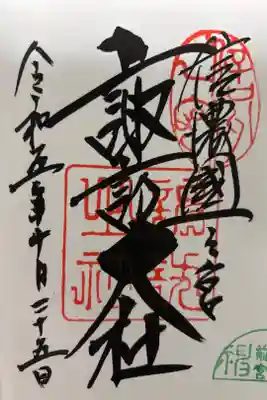 信濃國一之宮
諏訪大社
令和五年十月二十五日
前宮